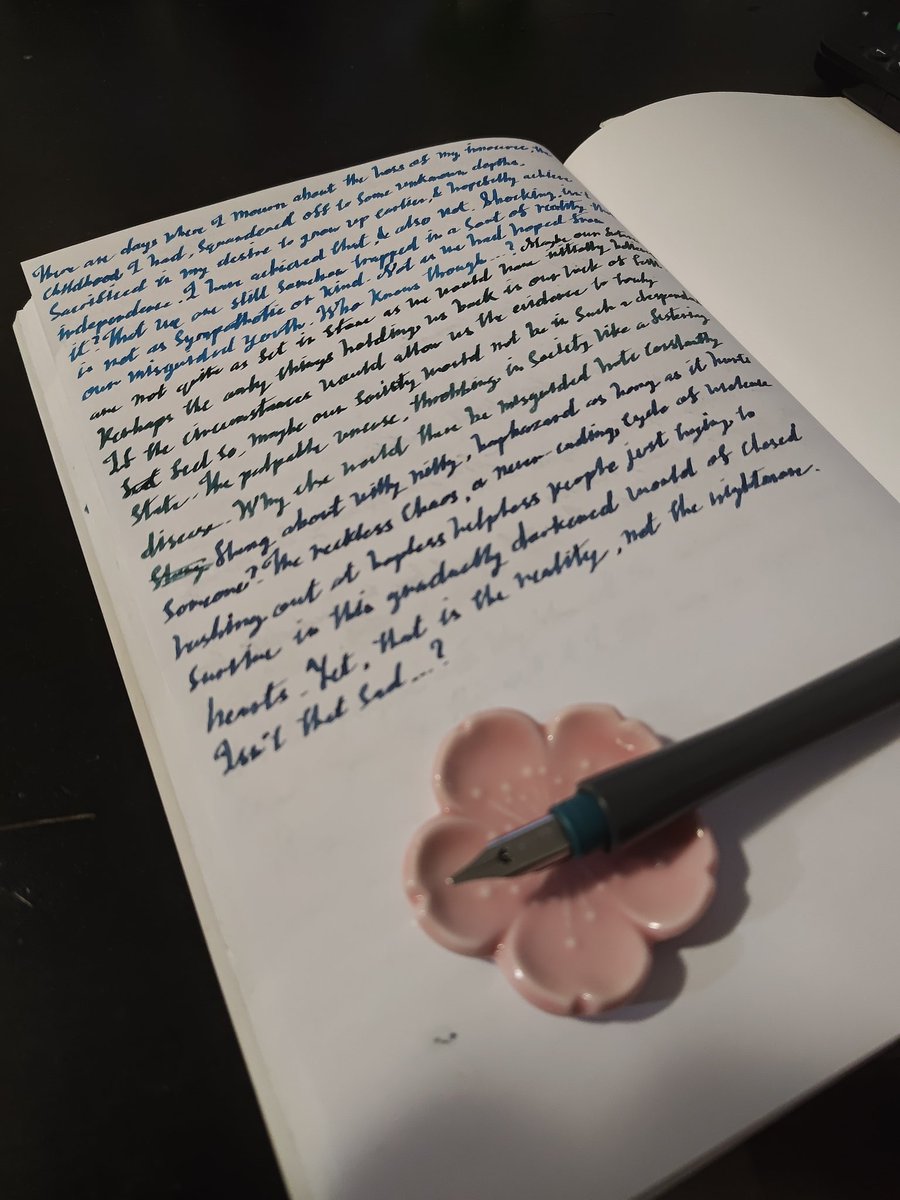 There are days where I mourn about the loss of my innocence, the
childhood I had, squandered off to some unknown depths.
Sacrificed in my desire to grow up earlier, & hopefully achieve
independence. I have achieved that, & also not. Shocking, isn't
it? That we are still somehow trapped in a sort of reality
is not as sympathetic or kind. Not as we had hoped from
our misguided youth. Who knows though...? Maybe our
are not quite as set in stone as we would have initially
Perhaps the only things holding us back is our lack of
If the circumstances would allow us the evidence to truly
Sext feel so, maybe our society would not be in such a
state. The palpable unease, throbbing in society like a festering
disease. Why else would there be misguided hate constantly
Stung Slung about willy nilly, haphazard as long as it hurts
someone? The reckless chaos, a never-ending cycle of violence
lashing out at hapless helpless people just trying to
survive in this gradually darkened world of closed
hearts. Yet, that is the reality, not the nightmare.
Isn't that sad...?